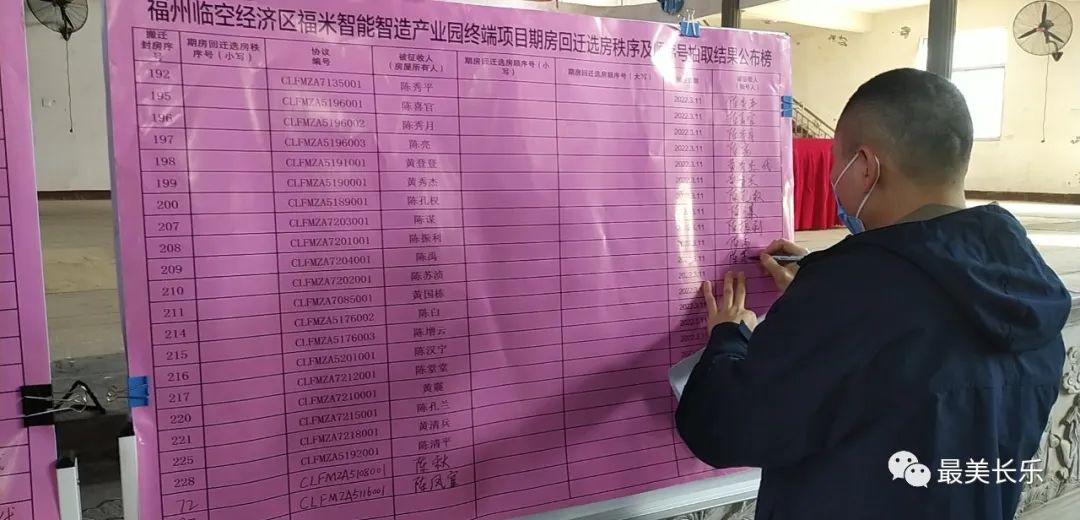 福州临空经济区福米智能智造产业园终端项目期房回迁选房秩序及
号抽取结果公布榜
搬迁封房序号 期房回迁选房秩序号（小写） 协议编号 被征收人（房屋所有人） 期房回迁选房顺序号（小写） 期房回迁选房顺序号（大写） 被征收人
192 CLFMZA7135001 陈秀平 2022.3.11
195 CLFMZA5196001 陈喜官 2022.3.11
196 CLFMZA5196002 陈秀月 2022.3.11
197 CLFMZA5196003 陈亮 2022.3.11
198 CLFMZA5191001 黄登登 2022.3.11
199 CLFMZA5190001 黄秀杰 2022.3.11
200 CLFMZA5189001 陈孔权 2022.3.11
207 CLFMZA7203001 陈谋 2022.3.11
208 CLFMZA7201001 陈振利 2022.3.11
209 CLFMZA7204001 陈禹 2022.3.11
210 CLFMZA7202001 陈苏浈 2022.3.11
211 CLFMZA7085001 黄国栋
214 CLFMZA5176002 陈白
215 CLFMZA5176003 陈增云
216 CLFMZA5201001 陈汉宁
217 CLFMZA7212001 陈堂堂
220 CLFMZA7210001 黄震
221 CLFMZA7215001 陈孔兰
225 CLFMZA7218001 黄清兵
228 CLFMZA5192001 陈清平
72 CLFMZA5108001 陈秋
CLFMZA5116001 陈凤宣
最美长乐